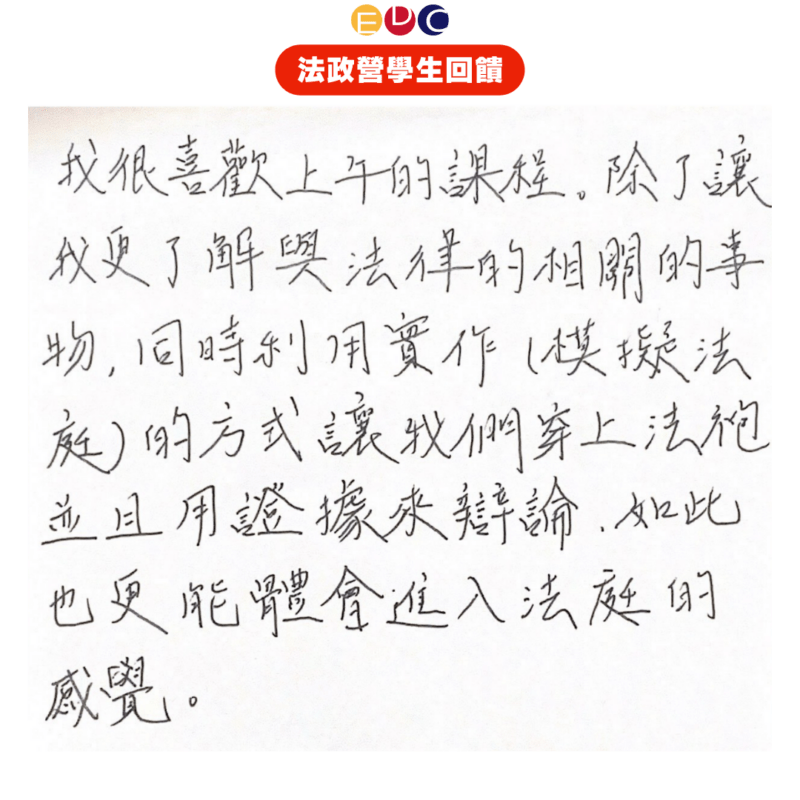 EDC
法政營學生回饋
我很喜歡上午的課程。除了讓
我更了解與法律的相關的事
物,同時利用實作(模擬法
庭)的方式讓我們穿上法袍
並且用證據來辯論.如此
也更能體會進入法庭的
感覺。